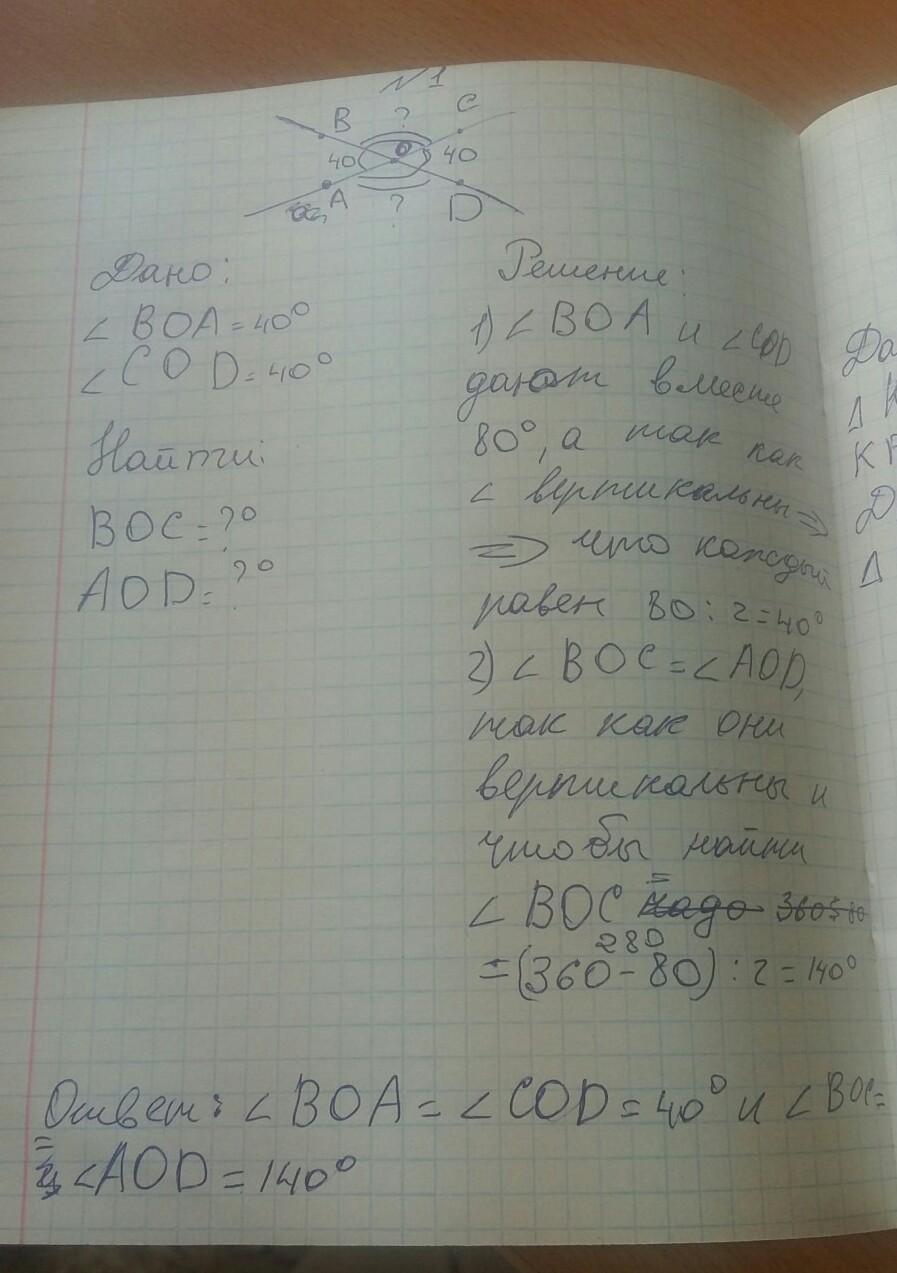 №1
B ? C
40 O 40
A ? D
Дано:
∠ BOA = 40°
∠ COD = 40°
Найти:
BOC = ?°
AOD = ?°
Решение:
1) ∠ BOA и ∠COD
дают вместе
80°, а так как
∠ вертикальны =>
=> что каждый
равен 80 : 2 = 40°
2) ∠ BOC = ∠ AOD,
так как они
вертикальны и
чтобы найти
∠ BOC = надо 360 80
280
= (360 - 80) : 2 = 140°
Ответ: ∠ BOA = ∠ COD = 40° и ∠ BOC =
= ∠ AOD = 140°
Да
Δ
К
Д
Δ